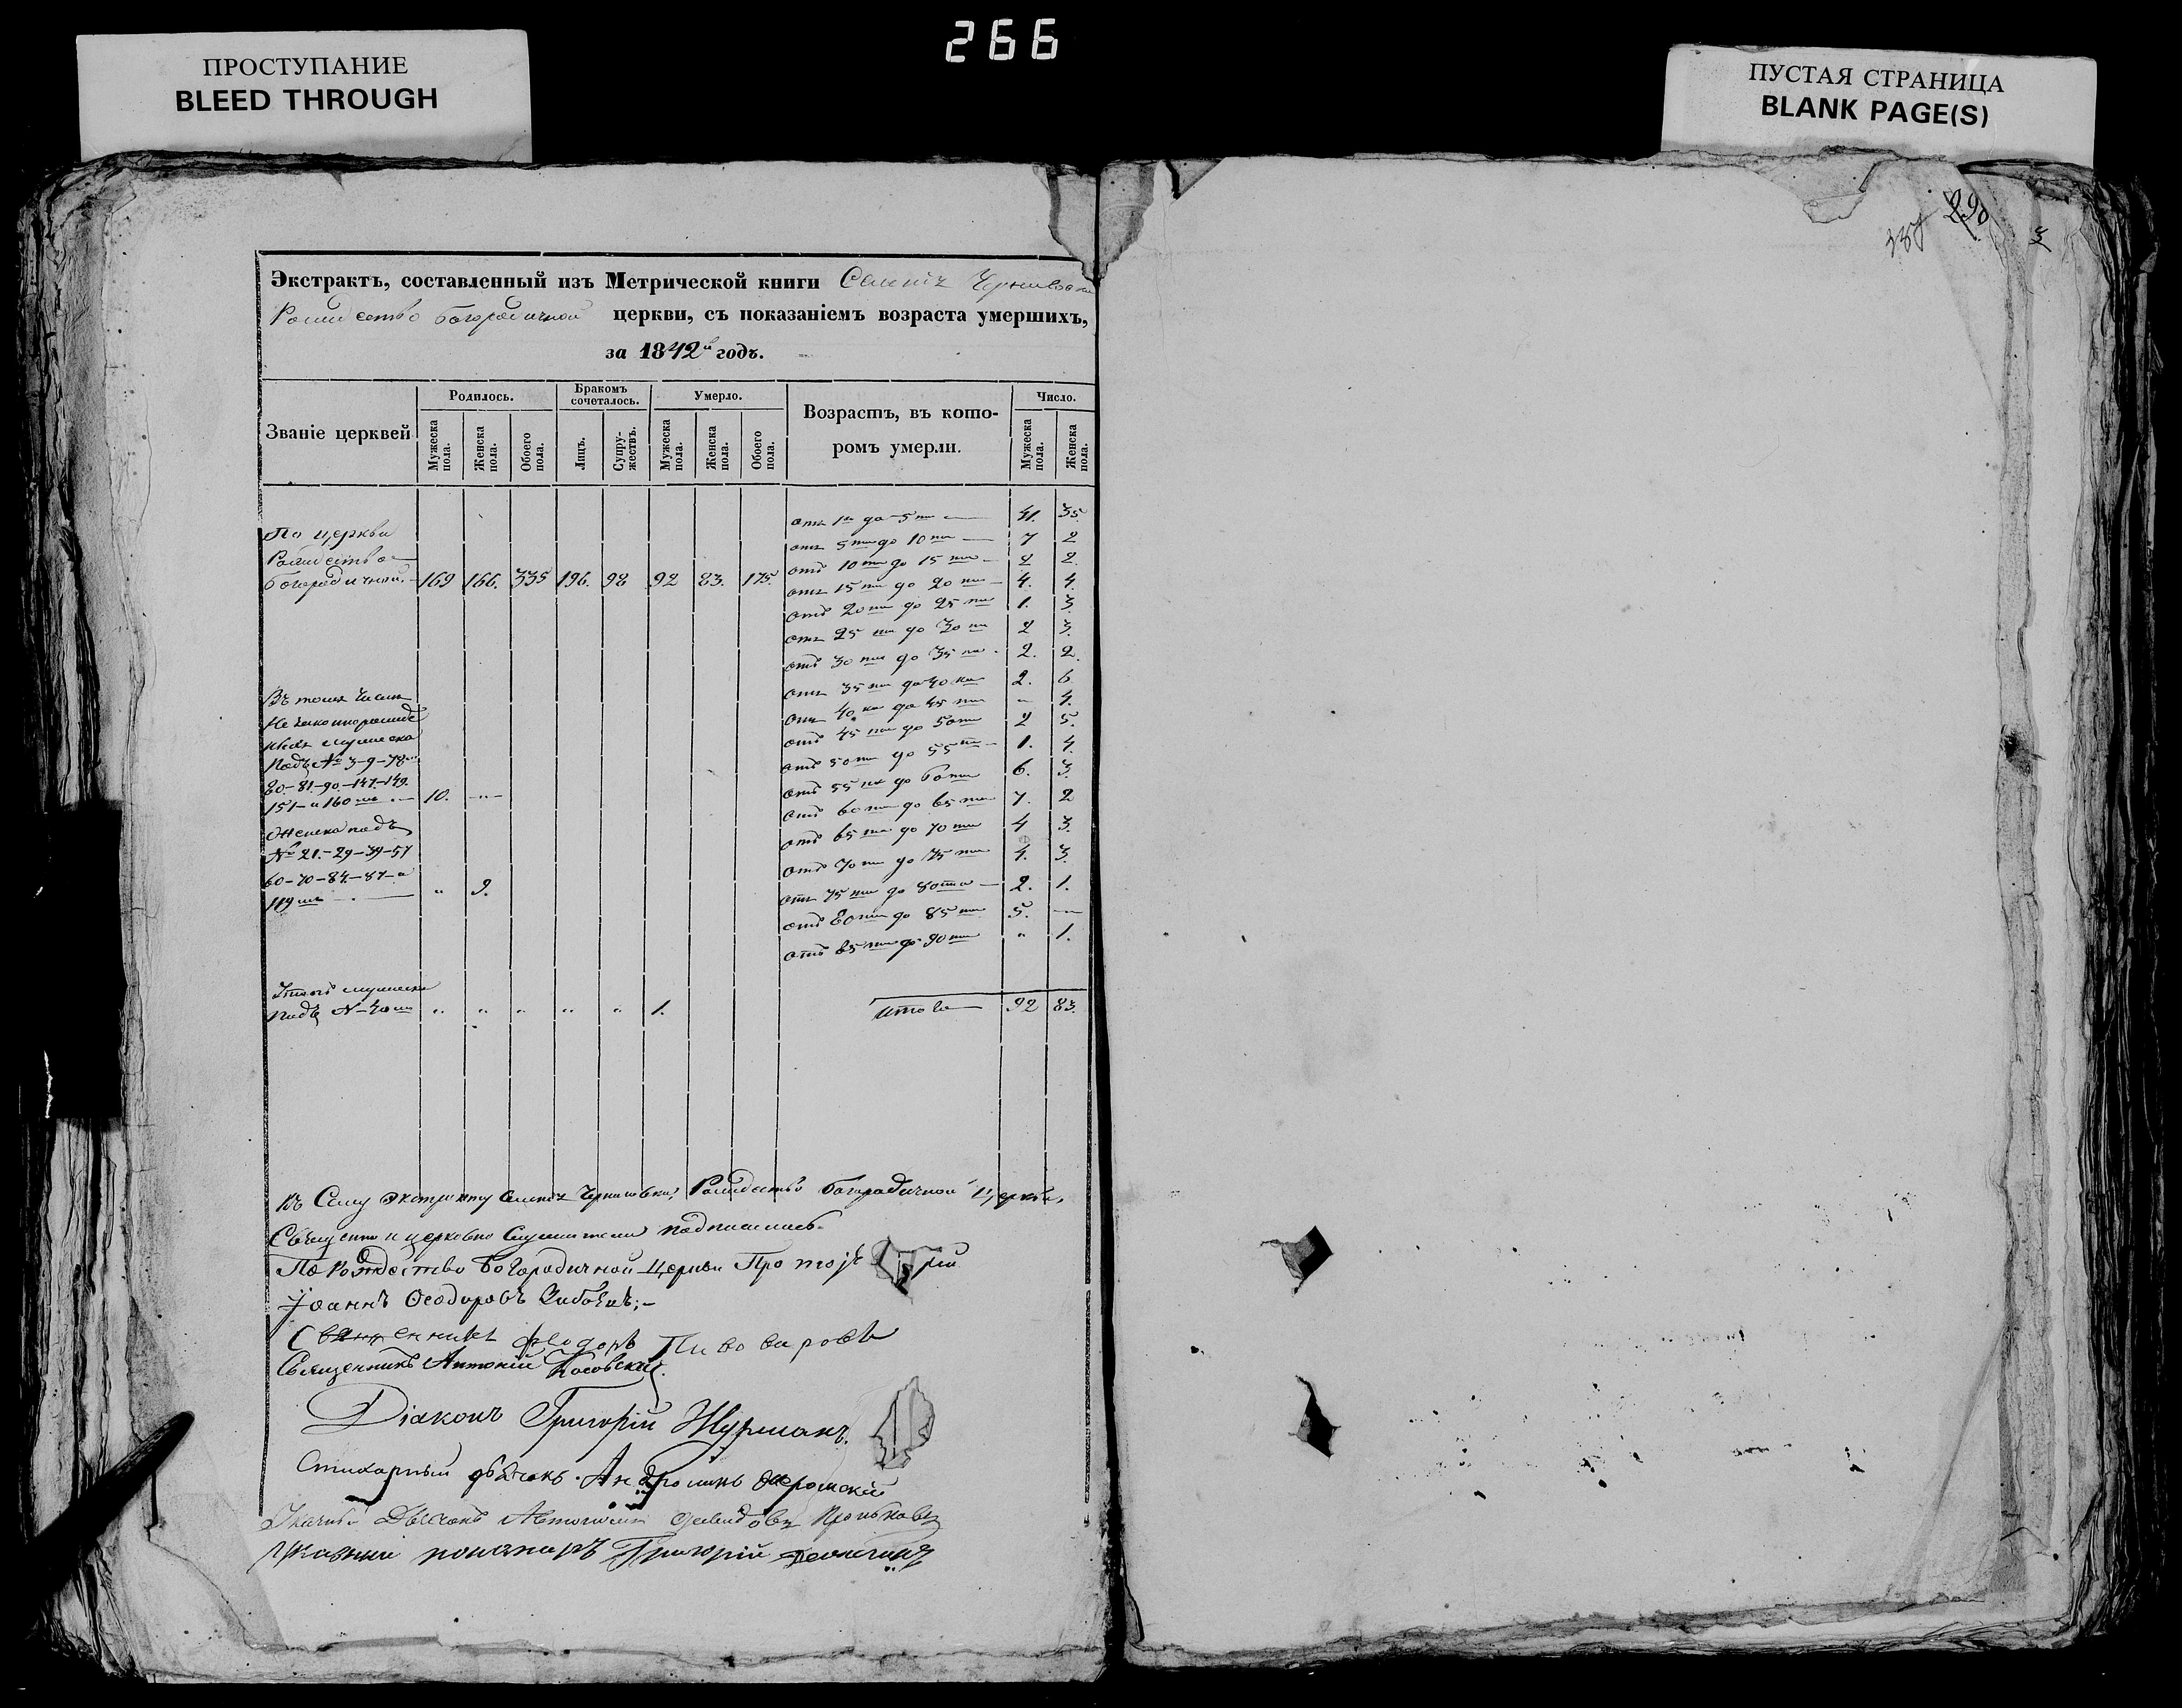 266
ПРОСТУПАНИЕ
BLEED THROUGH
ПУСТАЯ СТРАНИЦА
BLANK PAGE(S)
290
Экстрактъ, составленный изъ Метрической книги
Рождество Богородичной церкви, съ показаніемъ возраста умершихъ,
за 1842й годъ.
Званіе церквей
Родилось.
Бракомъ сочеталось.
Умерло.
Возрастъ, въ которомъ умерли.
Число.
Мужеска пола.
Женска пола.
Обоего пола.
Лицъ.
Супружествъ.
Мужеска пола.
Женска пола.
Обоего пола.
Мужеска пола.
Женска пола.
По церкви
Рождество-
Богородичной. 169 166. 335 196. 98 92 83. 175.
отъ 1го до 5ти 41. 35.
отъ 5ти до 10ти 7 2
отъ 10ти до 15ти 2 2.
отъ 15ти до 20ти 4. 4.
отъ 20ти до 25ти 1. 3.
отъ 25ти до 30ти 2 3.
отъ 30ти до 35ти 2. 2.
отъ 35ти до 40ка 2. 6
отъ 40ка до 45ти " 4.
отъ 45ти до 50ти 2 5.
отъ 50ти до 55ти 1. 4.
отъ 55ти до 60ти 6. 3.
отъ 60ти до 65ти 7. 2
отъ 65ти до 70ти 4 3.
отъ 70ти до 75ти 4. 3.
отъ 75ти до 80ти 2. 1.
отъ 80ти до 85ти 5. "
отъ 85ти до 90ти " 1.
Итого 92 83.
Въ томъ числѣ
мужеска
подъ № 3-9-78-
80-81-90-147-149.
151-и 160мъ 10. "
Женска подъ
№ 21-29-39-57
60-70-84-87-и
119мъ " 9.
мужеска
подъ № " " " " " 1.
Къ сему экстракту Рождество Богородичной церкви,
Священно и церковно служители подписались.
По Рождество Богородичной Церкви
Іоаннъ Ѳеодоровъ
Священникъ Феодоръ Пивоваровъ
Священникъ Антоній Косовскій.
Діаконъ Григорій Журманъ.
Стихарный дьячокъ Андроникъ
Дьячокъ
Указный пономаръ Григорій